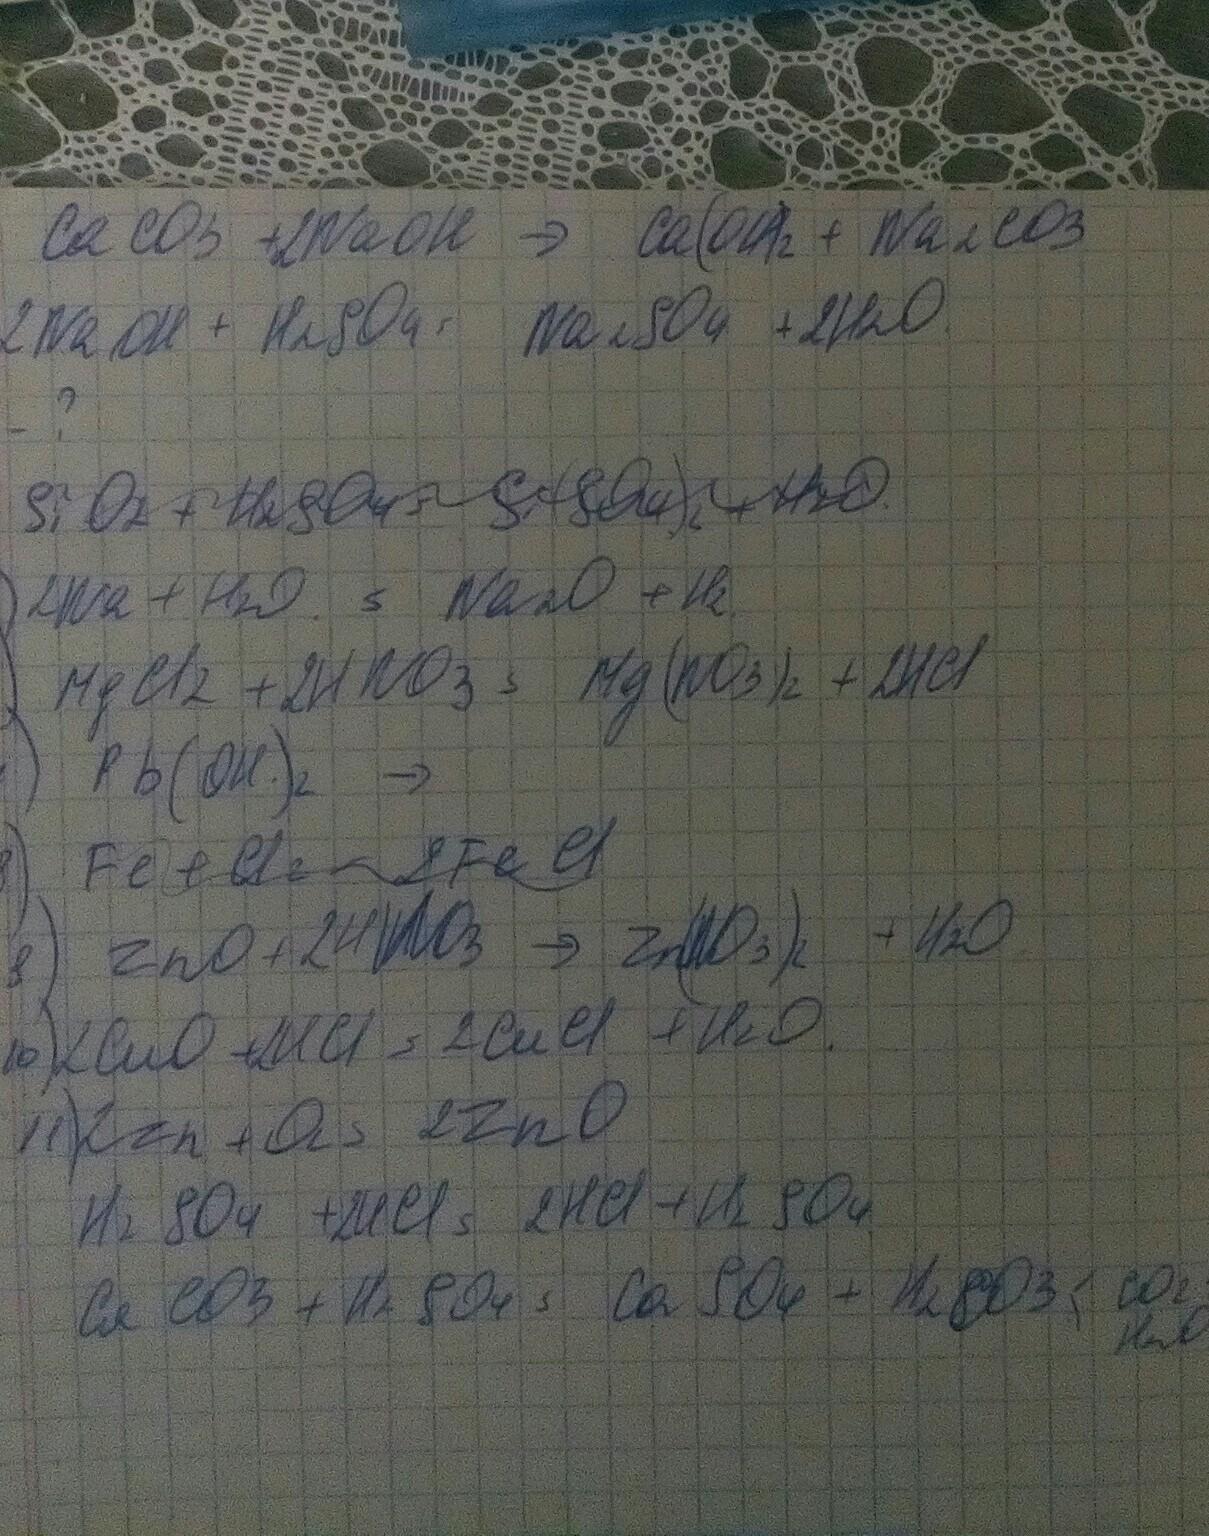 CaCO3 +2NaOH → Ca(OH)2 + Na2CO3
2NaOH + H2SO4 = Na2SO4 +2H2O.
- ?
SiO2 + H2SO4 = Si(SO4)2 + H2O.
) 2Na + H2O. = Na2O + H2.
) MgCl2 +2HNO3 = Mg(NO3)2 + 2HCl
) Pb(OH)2 →
8) Fe + Cl2 = 2FeCl
9) ZnO +2HNO3 → Zn(NO3)2 + H2O.
10) 2CuO +2HCl = 2CuCl + H2O.
11) 2Zn + O2 = 2ZnO
H2SO4 +2HCl = 2HCl + H2SO4
CaCO3 + H2SO4 = CaSO4 + H2CO3 < CO2
H2O